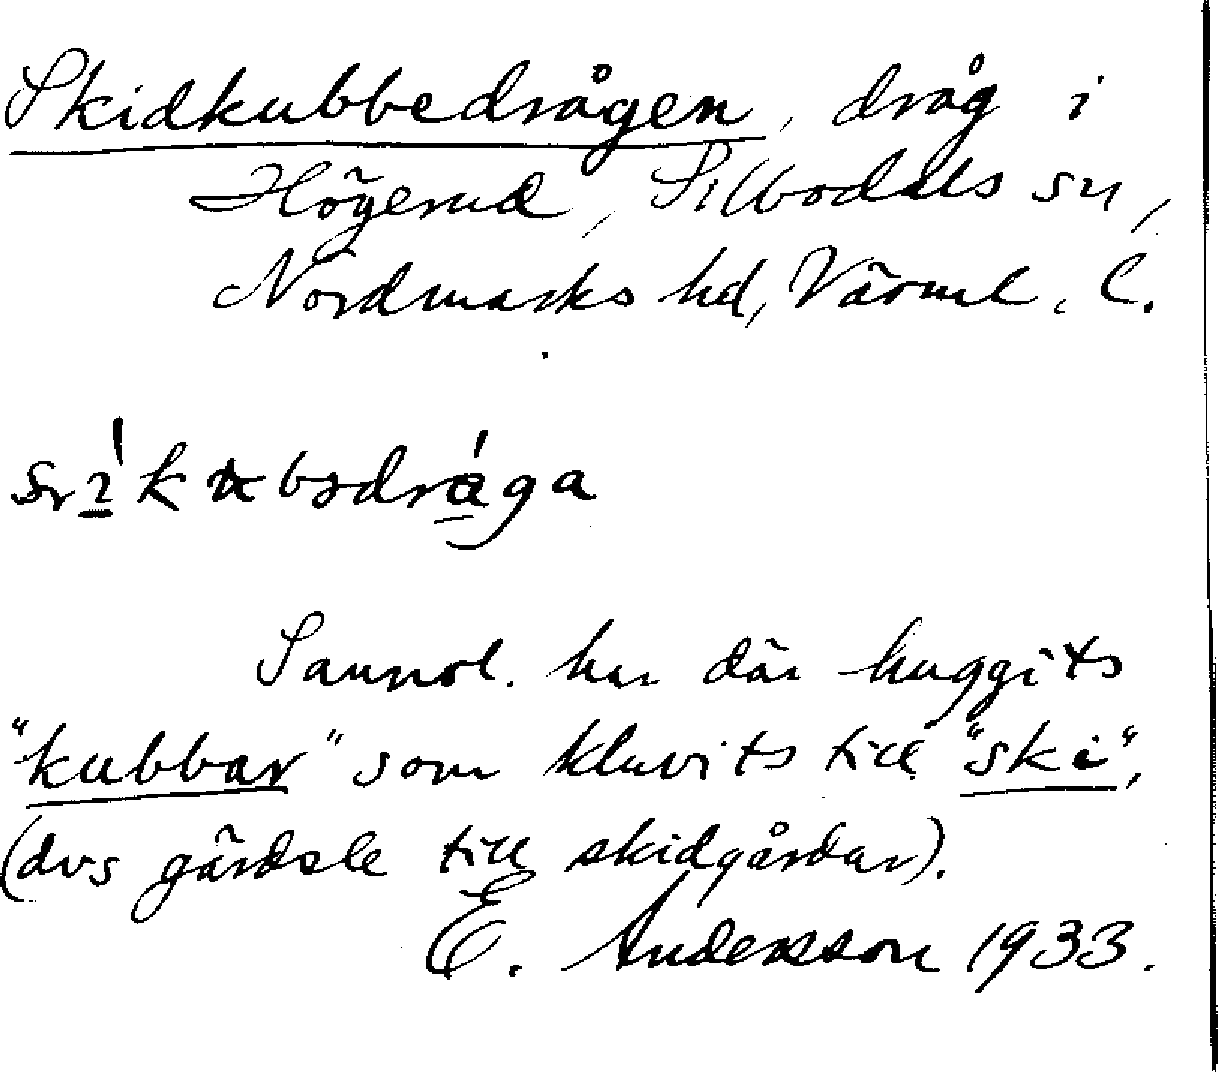 Skidkubbedrågen, dråg i
Högerud, Sillbodals sn,
Nordmarks hd, Värml. l.
Sannol. har där huggits
"kubbar" som kluvits till "ski",
(dvs gärdsle till skidgårdar).
E. Andersson 1933.